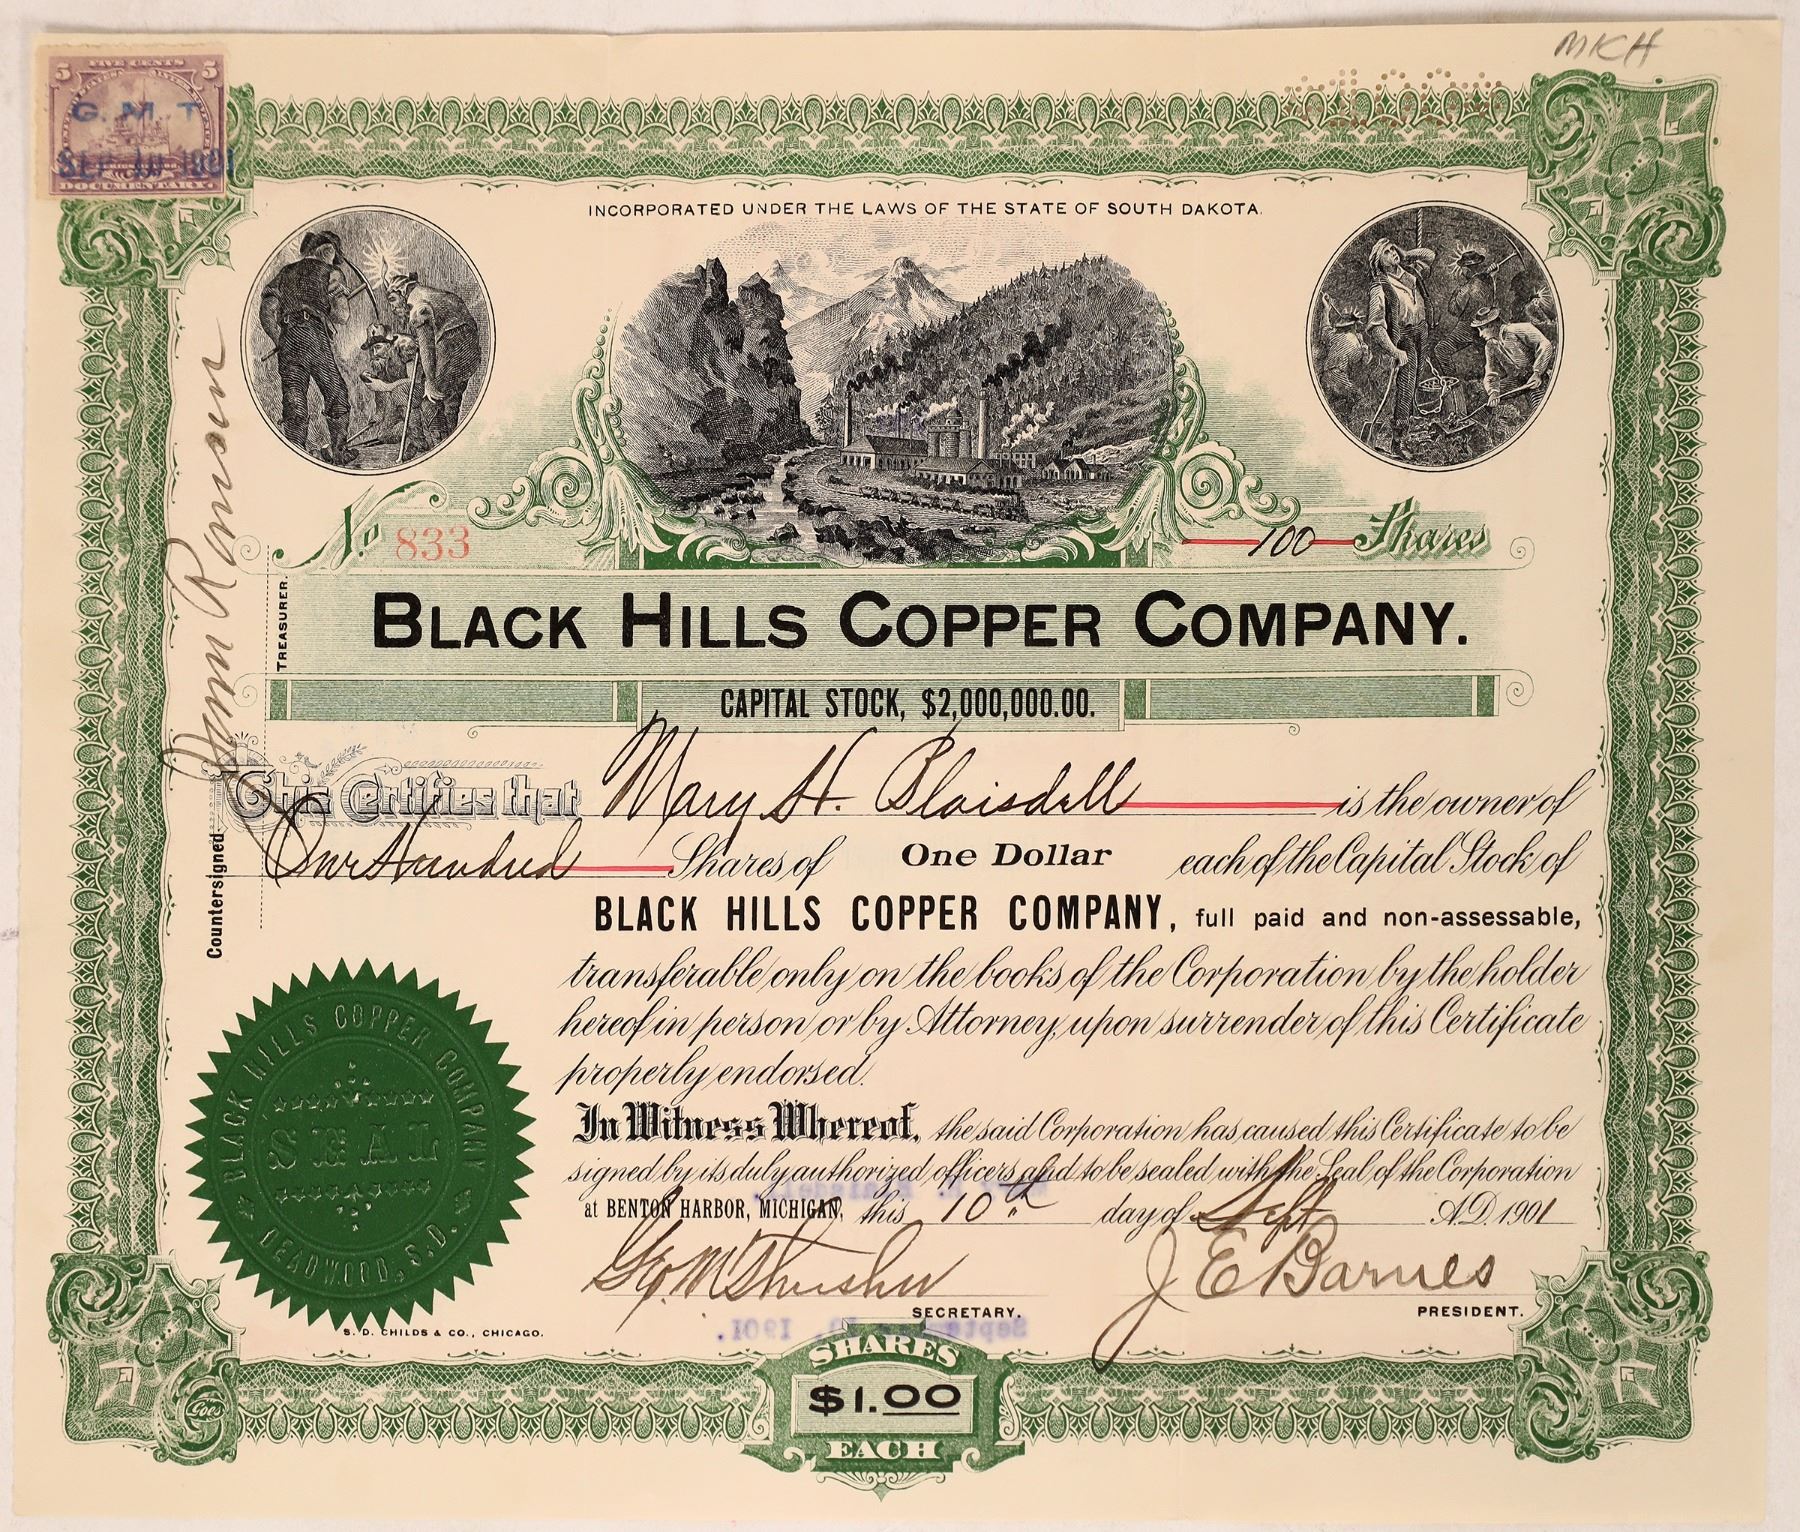 MKH
FIVE CENTS
5 5
G. M. T.
SEP 10 1901
DOCUMENTARY
INCORPORATED UNDER THE LAWS OF THE STATE OF SOUTH DAKOTA.
No 833
100 Shares
BLACK HILLS COPPER COMPANY.
CAPITAL STOCK, $2,000,000.00.
This Certifies that Mary H. Blaisdell is the owner of
One Hundred Shares of One Dollar each of the Capital Stock of
BLACK HILLS COPPER COMPANY, full paid and non-assessable,
transferable only on the books of the Corporation by the holder
hereof in person or by Attorney, upon surrender of this Certificate
properly endorsed.
In Witness Whereof, the said Corporation has caused this Certificate to be
signed by its duly authorized officers and to be sealed with the Seal of the Corporation
at BENTON HARBOR, MICHIGAN, this 10th day of Sept A.D. 1901
J E Barnes
SECRETARY.
PRESIDENT.
Countersigned
TREASURER.
BLACK HILLS COPPER COMPANY
SEAL
DEADWOOD, S.D.
S. D. CHILDS & CO., CHICAGO.
SHARES
$1.00
EACH
Goes